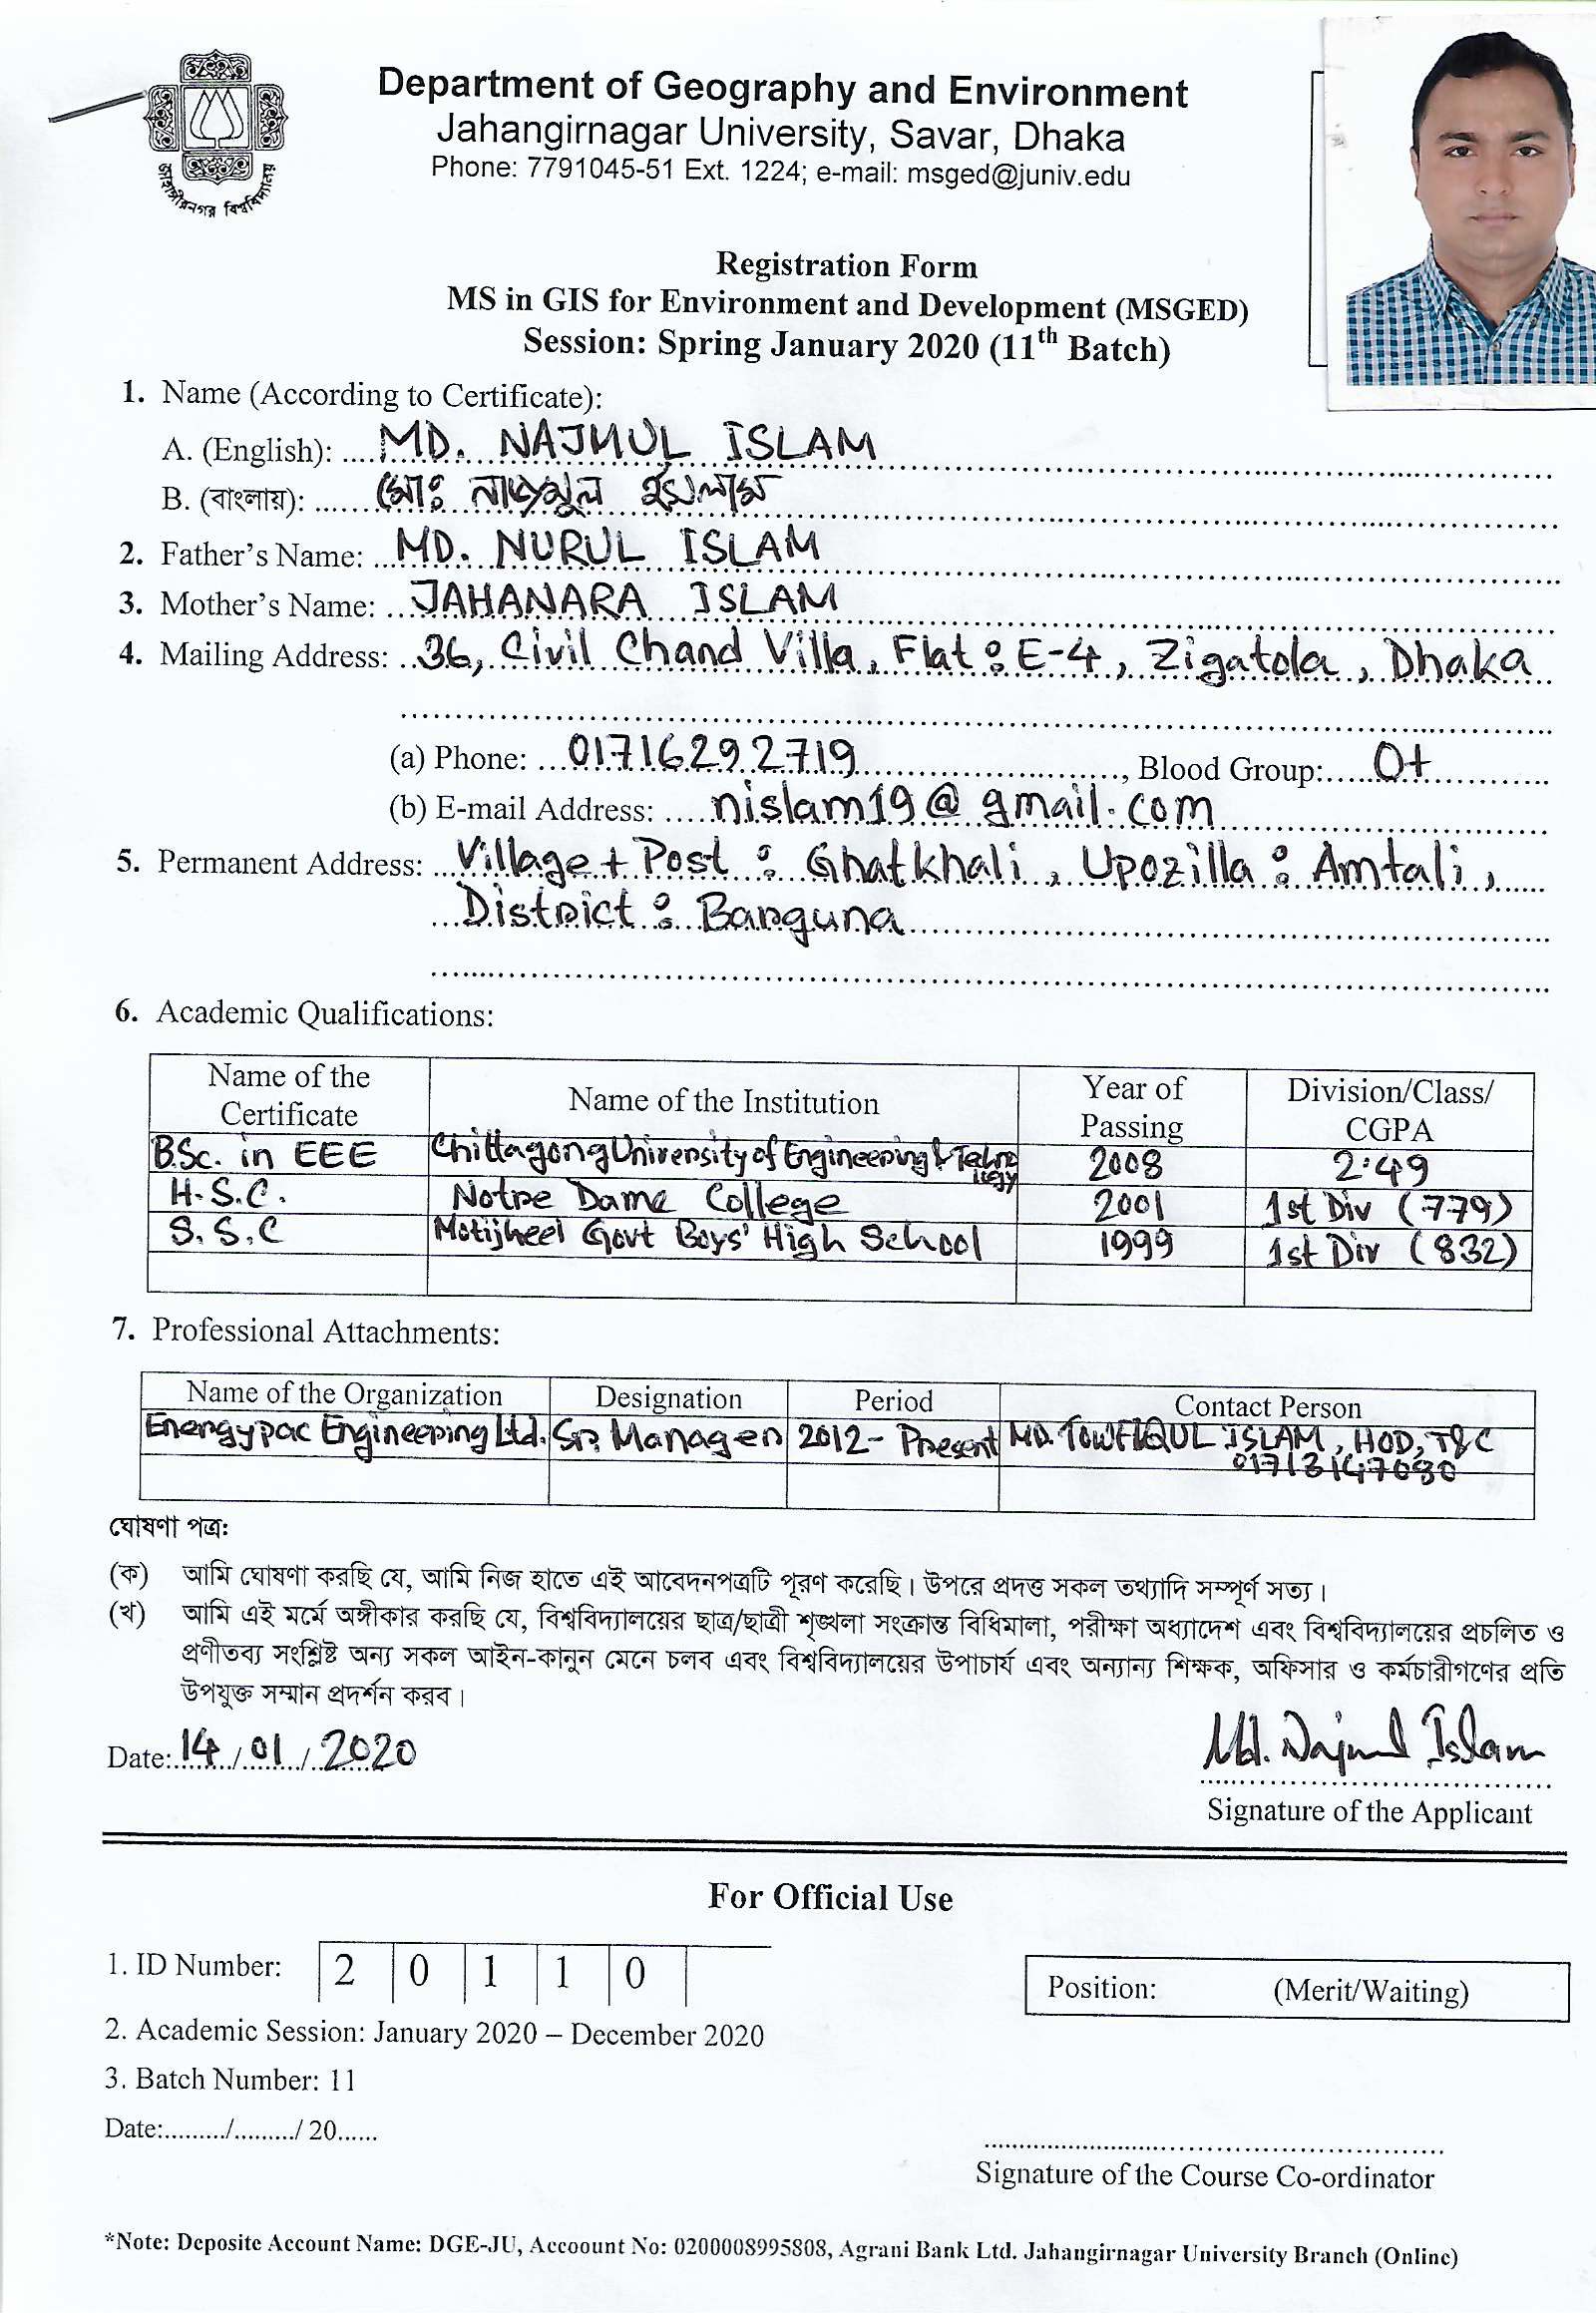 জাহাঙ্গীরনগর বিশ্ববিদ্যালয়
Department of Geography and Environment
Jahangirnagar University, Savar, Dhaka
Phone: 7791045-51 Ext. 1224; e-mail: msged@juniv.edu
Registration Form
MS in GIS for Environment and Development (MSGED)
Session: Spring January 2020 (11th Batch)
1. Name (According to Certificate):
A. (English): MD. NAJMUL ISLAM
B. (বাংলায়): মোঃ নাজমুল ইসলাম
2. Father's Name: MD. NURUL ISLAM
3. Mother's Name: JAHANARA ISLAM
4. Mailing Address: 36, Civil Chand Villa, Flat: E-4, Zigatola, Dhaka
(a) Phone: 01716292719, Blood Group: O+
(b) E-mail Address: nislam19@gmail.com
5. Permanent Address: Village + Post : Ghatkhali, Upozilla : Amtali,
District : Barguna
6. Academic Qualifications:
Name of the Certificate Name of the Institution Year of Passing Division/Class/CGPA
B.Sc. in EEE Chittagong University of Engineering & Technology 2008 2.49
H.S.C. Notre Dame College 2001 1st Div (779)
S.S.C Motijheel Govt Boys' High School 1999 1st Div (832)
7. Professional Attachments:
Name of the Organization Designation Period Contact Person
Energypac Engineering Ltd. Sr. Manager 2012- Present MD. TOWFIQUL ISLAM, HOD, T&C
01713147080
ঘোষণা পত্র:
(ক) আমি ঘোষণা করছি যে, আমি নিজ হাতে এই আবেদনপত্রটি পূরণ করেছি। উপরে প্রদত্ত সকল তথ্যাদি সম্পূর্ণ সত্য।
(খ) আমি এই মর্মে অঙ্গীকার করছি যে, বিশ্ববিদ্যালয়ের ছাত্র/ছাত্রী শৃঙ্খলা সংক্রান্ত বিধিমালা, পরীক্ষা অধ্যাদেশ এবং বিশ্ববিদ্যালয়ের প্রচলিত ও
প্রণীতব্য সংশ্লিষ্ট অন্য সকল আইন-কানুন মেনে চলব এবং বিশ্ববিদ্যালয়ের উপাচার্য এবং অন্যান্য শিক্ষক, অফিসার ও কর্মচারীগণের প্রতি
উপযুক্ত সম্মান প্রদর্শন করব।
Date: 14/01/2020 Md. Najmul Islam
Signature of the Applicant
For Official Use
1. ID Number: 2 0 1 1 0
Position: (Merit/Waiting)
2. Academic Session: January 2020 – December 2020
3. Batch Number: 11
Date:........./........./ 20......
Signature of the Course Co-ordinator
*Note: Deposite Account Name: DGE-JU, Accoount No: 0200008995808, Agrani Bank Ltd. Jahangirnagar University Branch (Online)